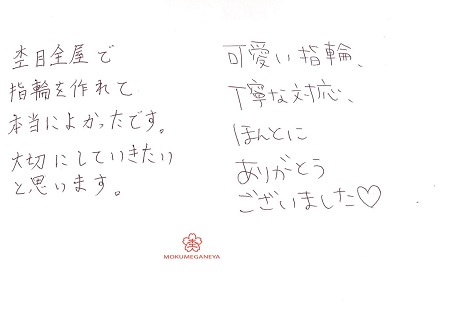 杢目金屋で
指輪を作れて
本当によかったです。
大切にしていきたい
と思います。
可愛い指輪、
丁寧な対応、
ほんとに
ありがとう
ございました♡
MOKUMEGANEYA